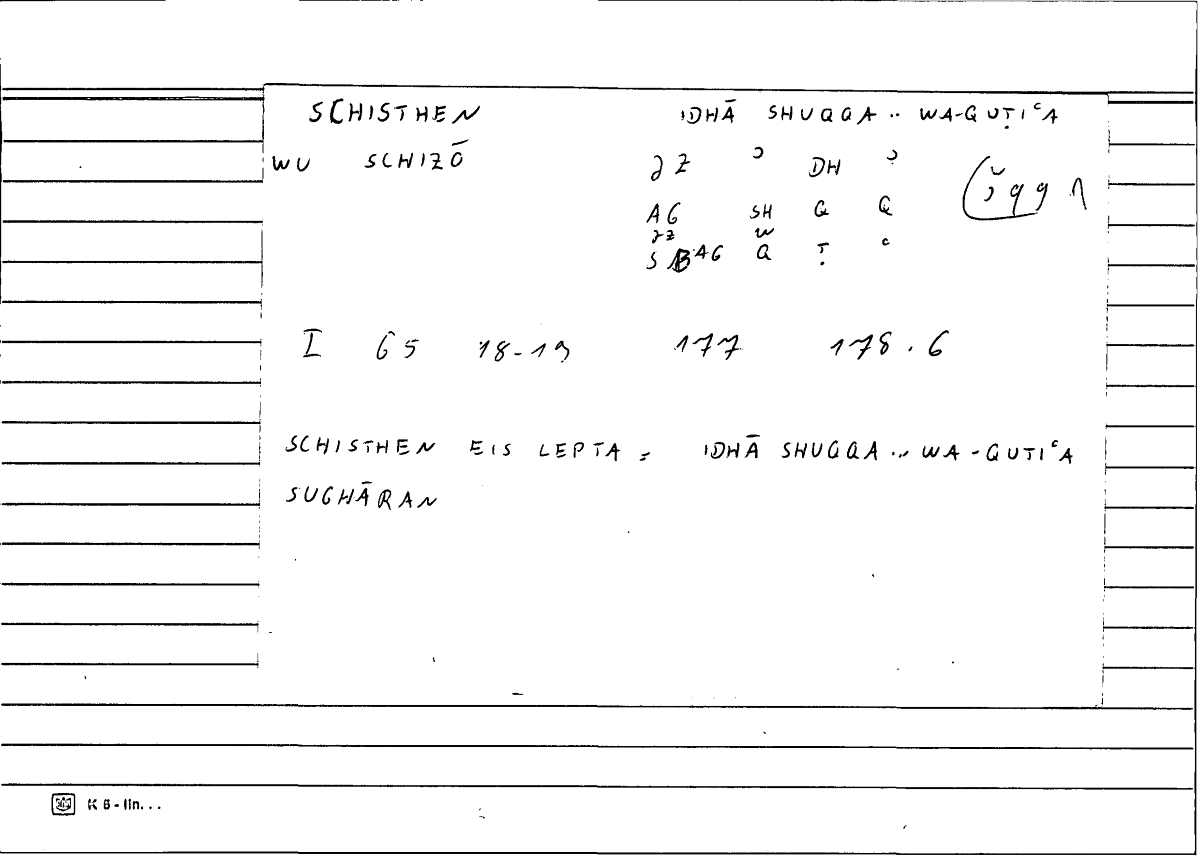 SCHISTHEN IDHĀ SHUQQA .. WA-QUṬIᶜA
WU SCHIZŌ ZZ ɔ DH ɔ
AG SH Q Q
ZZ W
S AG Q Ṭ ᶜ
I 65 18-19 177 178.6
SCHISTHEN EIS LEPTA = IDHĀ SHUQQA .. WA-QUTIᶜA
SUGHĀRAN
K 6 - lin...